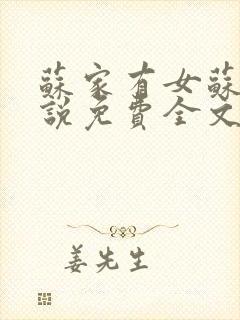 蘇家有女蘇
說免費全文
姜先生